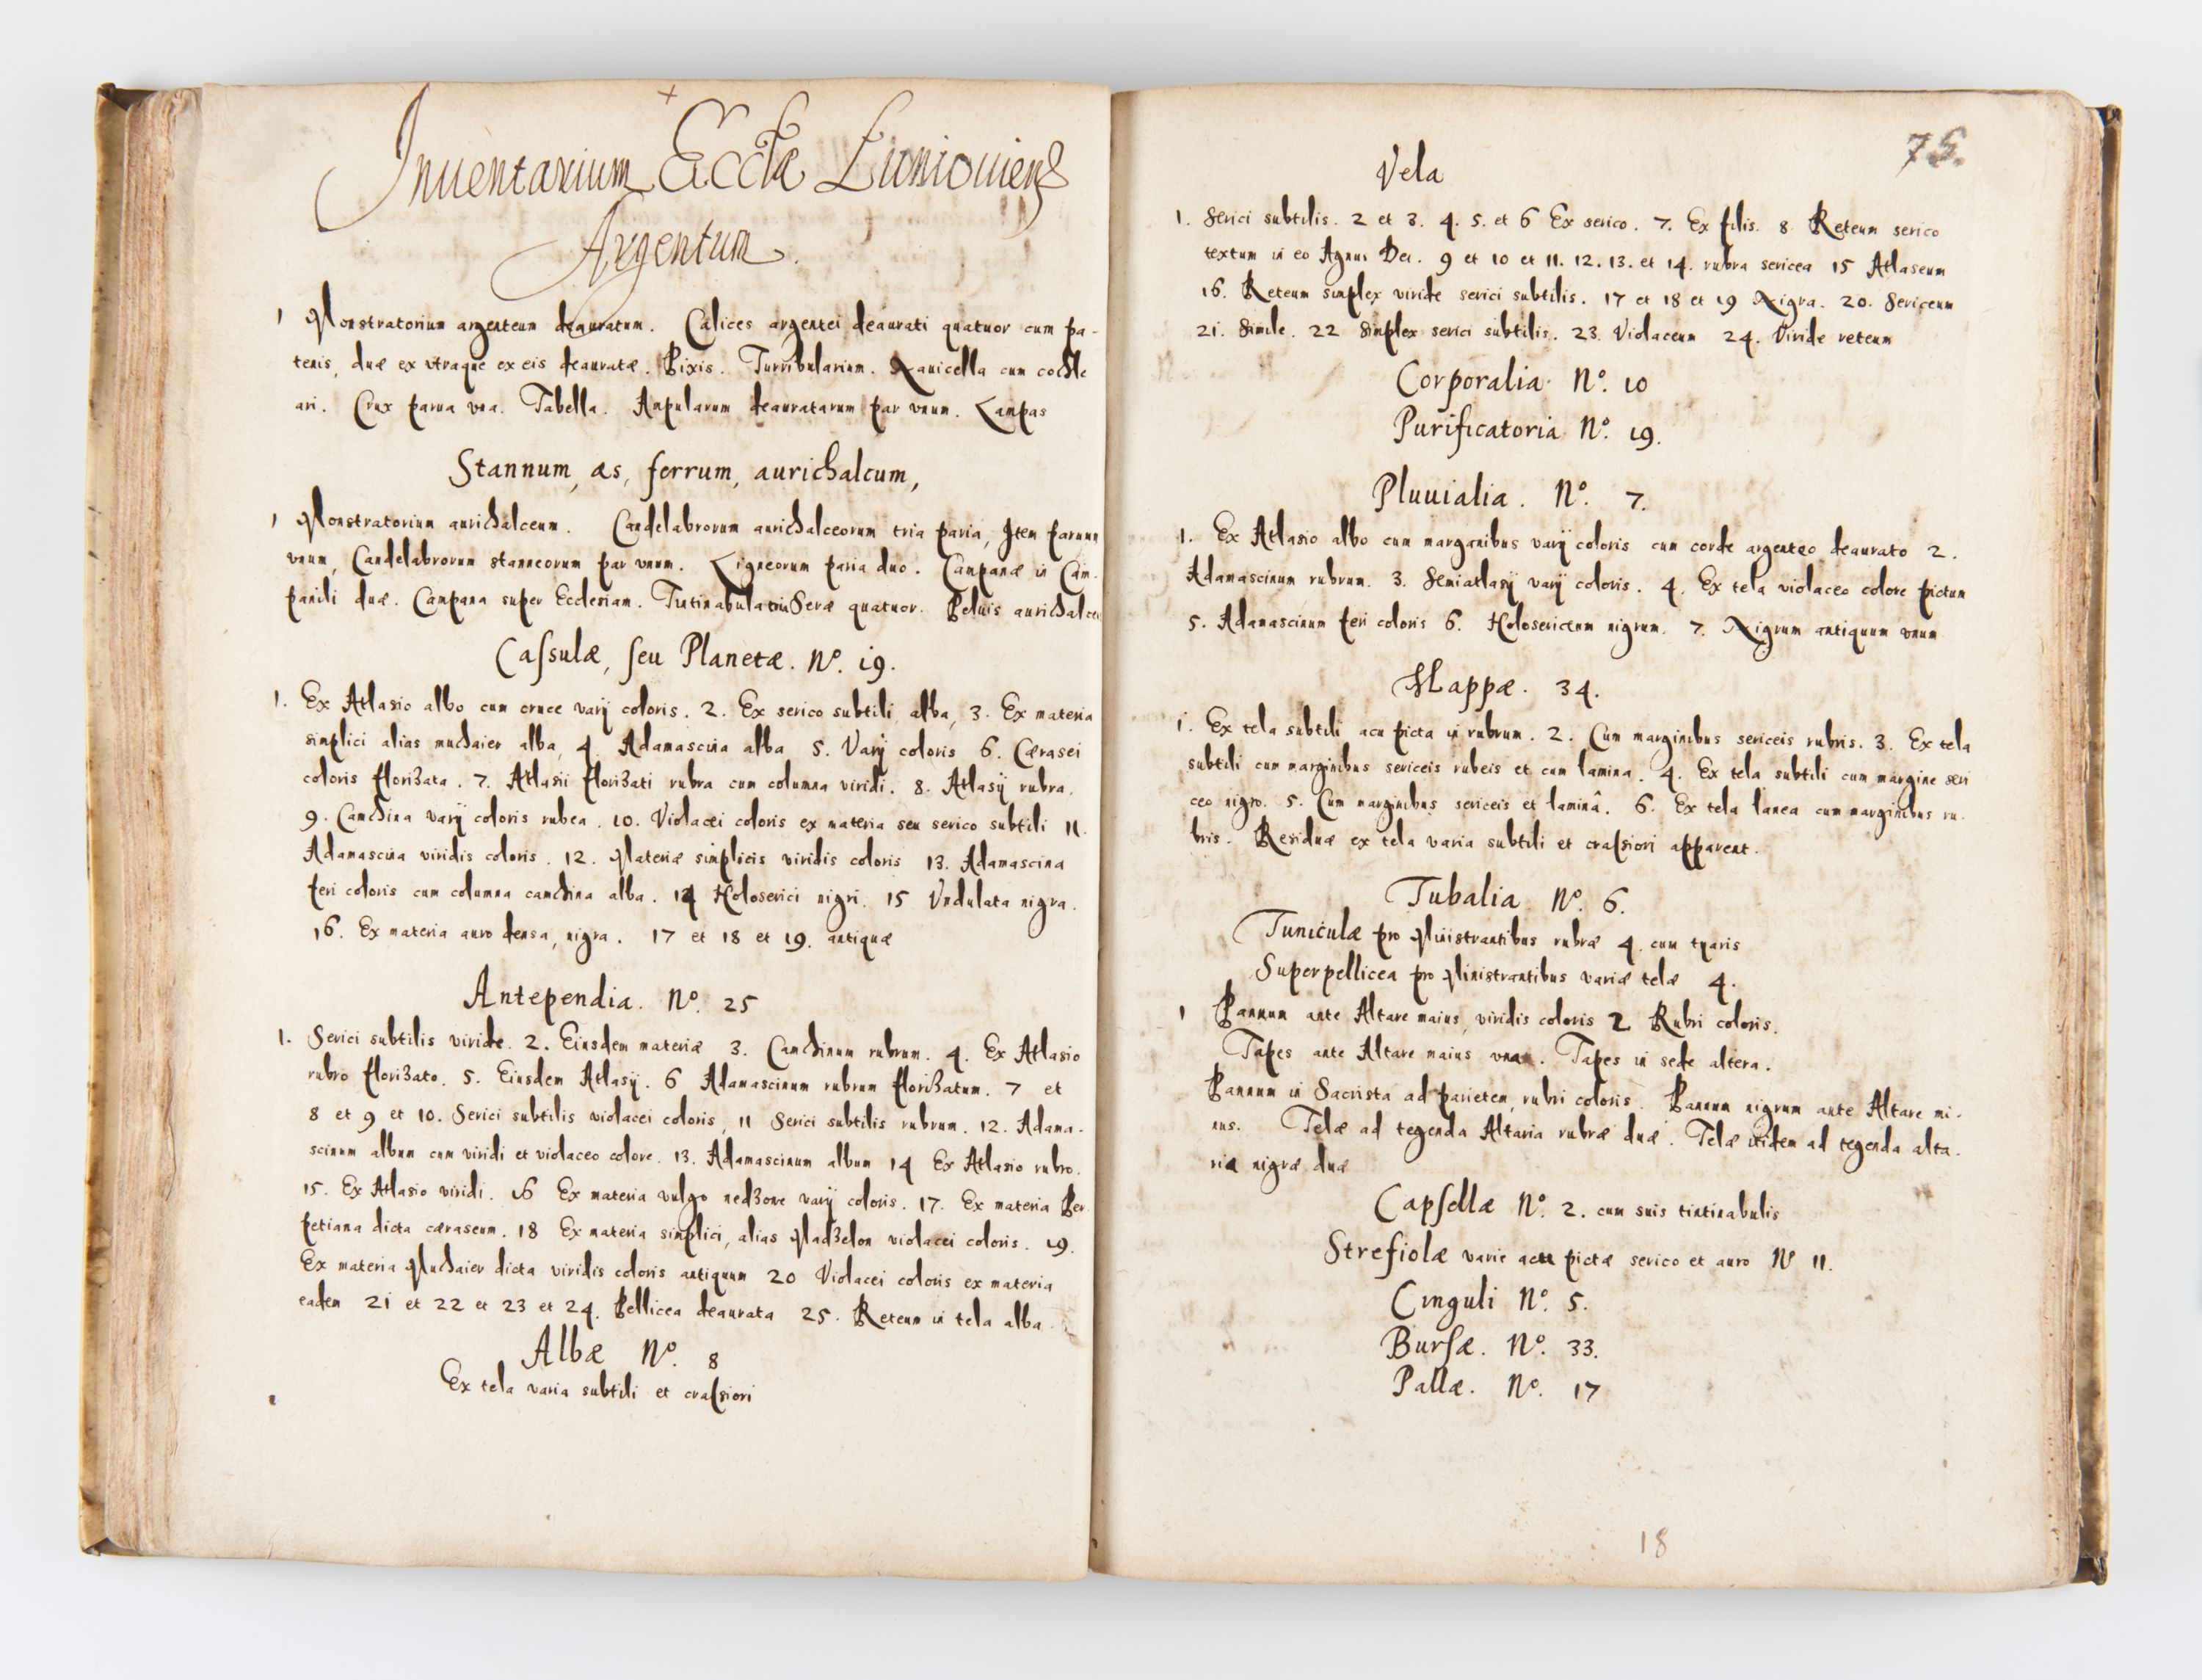 Inuentarium Eccłæ Liiniouiens
Argentum.
1 Monstratorium argenteum deauratum. Calices argentei deaurati quatuor cum pa-
tenis, duæ ex vtraque ex eis deauratæ. Pixis. Turribularium. Nauicella cum cochle
ari. Crux parua vna. Tabella. Ampularum deauratarum par vnum. Lampas
Stannum, æs, ferrum, aurichalcum,
1 Monstratorium aurichalceum. Candelabrorum aurichalceorum tria paria, Item paruum
vnum, Candelabrorum stanneorum par vnum. Ligneorum paria duo. Campanæ in Cam-
panili duæ. Campana super Ecclesiam. Tintinabula Seræ quatuor. Peluis aurichalcea
Cassulæ, seu Planetæ. No. 19.
1. Ex Atlasio albo cum cruce varij coloris. 2. Ex serico subtili alba, 3. Ex materia
simplici alias muchaier alba, 4. Adamascina alba 5. Varij coloris 6. Cærasei
coloris florizata. 7. Atlasii florizati rubra cum columna viridi. 8. Atlasij rubra.
9. Camchina varij coloris rubea. 10. Violacei coloris ex materia seu serico subtili 11.
Adamascina viridis coloris. 12. Materiæ simplicis viridis coloris 13. Adamascina
feri coloris cum columna camchina alba. 14 Holoserici nigri. 15 Vndulata nigra.
16. Ex materia auro densa, nigra. 17 et 18 et 19. antiquæ
Antependia. No. 25
1. Serici subtilis viride. 2. Eiusdem materiæ 3. Camchinum rubrum. 4. Ex Atlasio
rubro florizato. 5. Eiusdem Atlasij. 6 Adamascinum rubrum florizatum. 7 et
8 et 9 et 10. Serici subtilis violacei coloris, 11 Serici subtilis rubrum. 12. Adama-
scinum album cum viridi et violaceo colore. 13. Adamascinum album 14 Ex Atlasio rubro.
15. Ex Atlasio viridi. 16 Ex materia vulgo nedzone varij coloris. 17. Ex materia Per
petiana dicta cæraseum. 18 Ex materia simplici, alias Madzelon violacei coloris. 19.
Ex materia Muchaier dicta viridis coloris antiquum 20 Violacei coloris ex materia
eadem 21 et 22 et 23 et 24. Pellicea deaurata 25. Reteum in tela alba
Albæ No. 8
Ex tela varia subtili et crassiori
75.
Vela
1. Serici subtilis. 2 et 3. 4. 5. et 6 Ex serico. 7. Ex filis. 8 Reteum serico
textum in eo Agnus Dei. 9 et 10 et 11. 12. 13. et 14. rubra sericea 15 Atlaseum
16. Reteum simplex viride serici subtilis. 17 et 18 et 19 Nigra. 20. Sericeum
21. Simile. 22 Simplex serici subtilis. 23. Violaceum 24. Viride reteum
Corporalia No. 10
Purificatoria No. 19.
Pluuialia. No. 7.
1. Ex Atlasio albo cum marganibus varij coloris cum corde argenteo deaurato 2.
Adamascinum rubrum. 3. Semiatlasij varij coloris. 4. Ex tela violaceo colore pictum
5. Adamascinum feri coloris 6. Holosericeum nigrum. 7. Nigrum antiquum vnum
Mappæ. 34.
1. Ex tela subtili acu picta in rubrum. 2. Cum marginibus sericeis rubris. 3. Ex tela
subtili cum marginibus sericeis rubeis et cum lamina. 4. Ex tela subtili cum margine seri
ceo nigro. 5. Cum marginibus sericeis et laminâ. 6. Ex tela lanea cum marginibus ru-
bris. Residuæ ex tela varia subtili et crassiori apparent.
Tubalia No. 6.
Tuniculæ pro Ministrantibus rubræ 4. cum
Superpellicea pro Ministrantibus variæ telæ 4.
1 Pannum ante Altare maius, viridis coloris 2 Rubri coloris.
Tapes ante Altare maius . Tapes in sede altera.
Pannum in Sacrista ad parietem, rubri coloris. Pannum nigrum ante Altare mi-
nus. Telæ ad tegenda Altaria rubræ duæ. Telæ itidem ad tegenda alta-
ria nigræ duæ
Capsellæ No. 2. cum suis tintinabulis
Strefiolæ varie acu pictæ serico et auro No 11.
Cinguli No. 5.
Bursæ. No. 33.
Pallæ. No. 17
18